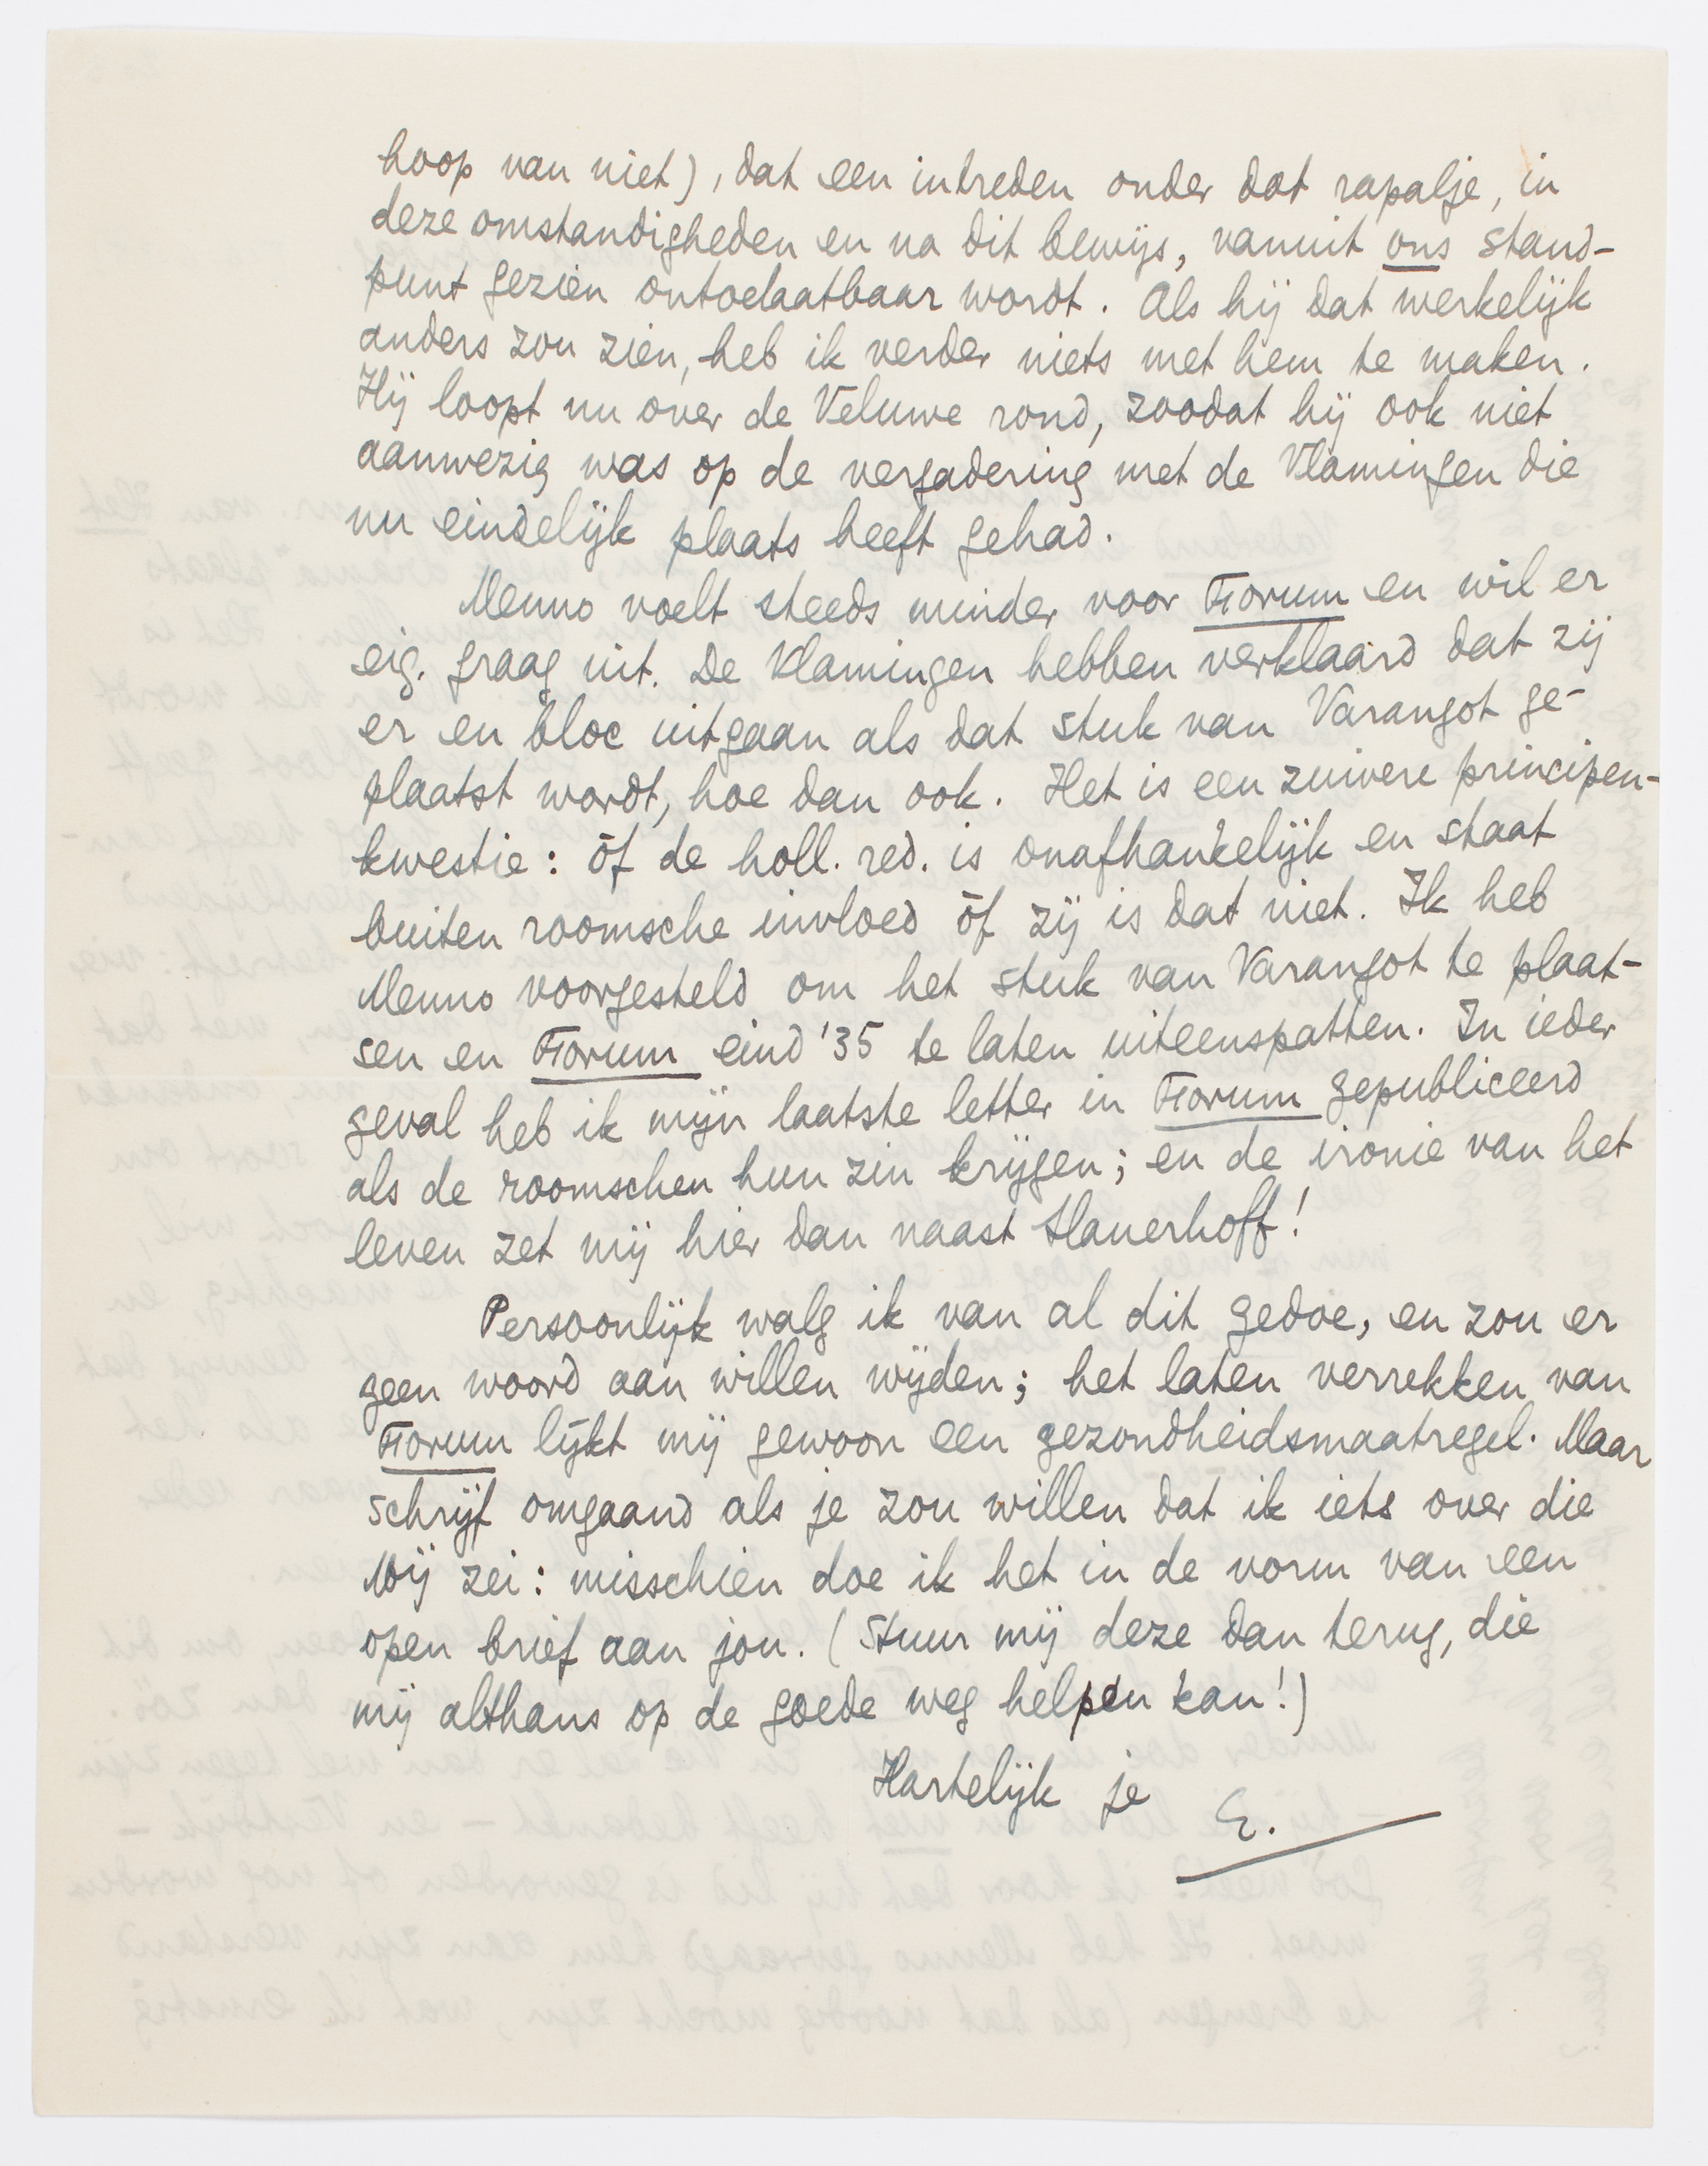 hoop van niet), dat een intreden onder dat rapalje, in
deze omstandigheden en na dit bewijs, vanuit ons stand-
punt gezien ontoelaatbaar wordt. Als hij dat werkelijk
anders zou zien, heb ik verder niets met hem te maken.
Hij loopt nu over de Veluwe rond, zoodat hij ook niet
aanwezig was op de vergadering met de Vlamingen die
nu eindelijk plaats heeft gehad.
Menno voelt steeds minder voor Forum en wil er
eig. graag uit. De Vlamingen hebben verklaard dat zij
er en bloc uitgaan als dat stuk van Varangot ge-
plaatst wordt, hoe dan ook. Het is een zuivere principen-
kwestie: òf de holl. red. is onafhankelijk en staat
buiten roomsche invloed òf zij is dat niet. Ik heb
Menno voorgesteld om het stuk van Varangot te plaat-
sen en Forum eind '35 te laten uiteenspatten. In ieder
geval heb ik mijn laatste letter in Forum gepubliceerd
als de roomschen hun zin krijgen; en de ironie van het
leven zet mij hier dan naast Slauerhoff!
Persoonlijk walg ik van al dit gedoe, en zou er
geen woord aan willen wijden; het laten verrekken van
Forum lijkt mij gewoon een gezondheidsmaatregel. Maar
schrijf omgaand als je zou willen dat ik iets over die
Mij zei: misschien doe ik het in de vorm van een
open brief aan jou. (Stuur mij deze dan terug, die
mij althans op de goede weg helpen kan!)
Hartelijk je E.